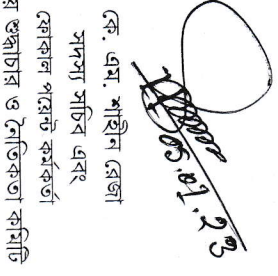 05.01.23
কে. এম. শাহিন রেজা
সদস্য সচিব এবং
ফোকাল পয়েন্ট কর্মকর্তা
শুদ্ধাচার ও নৈতিকতা কমিটি